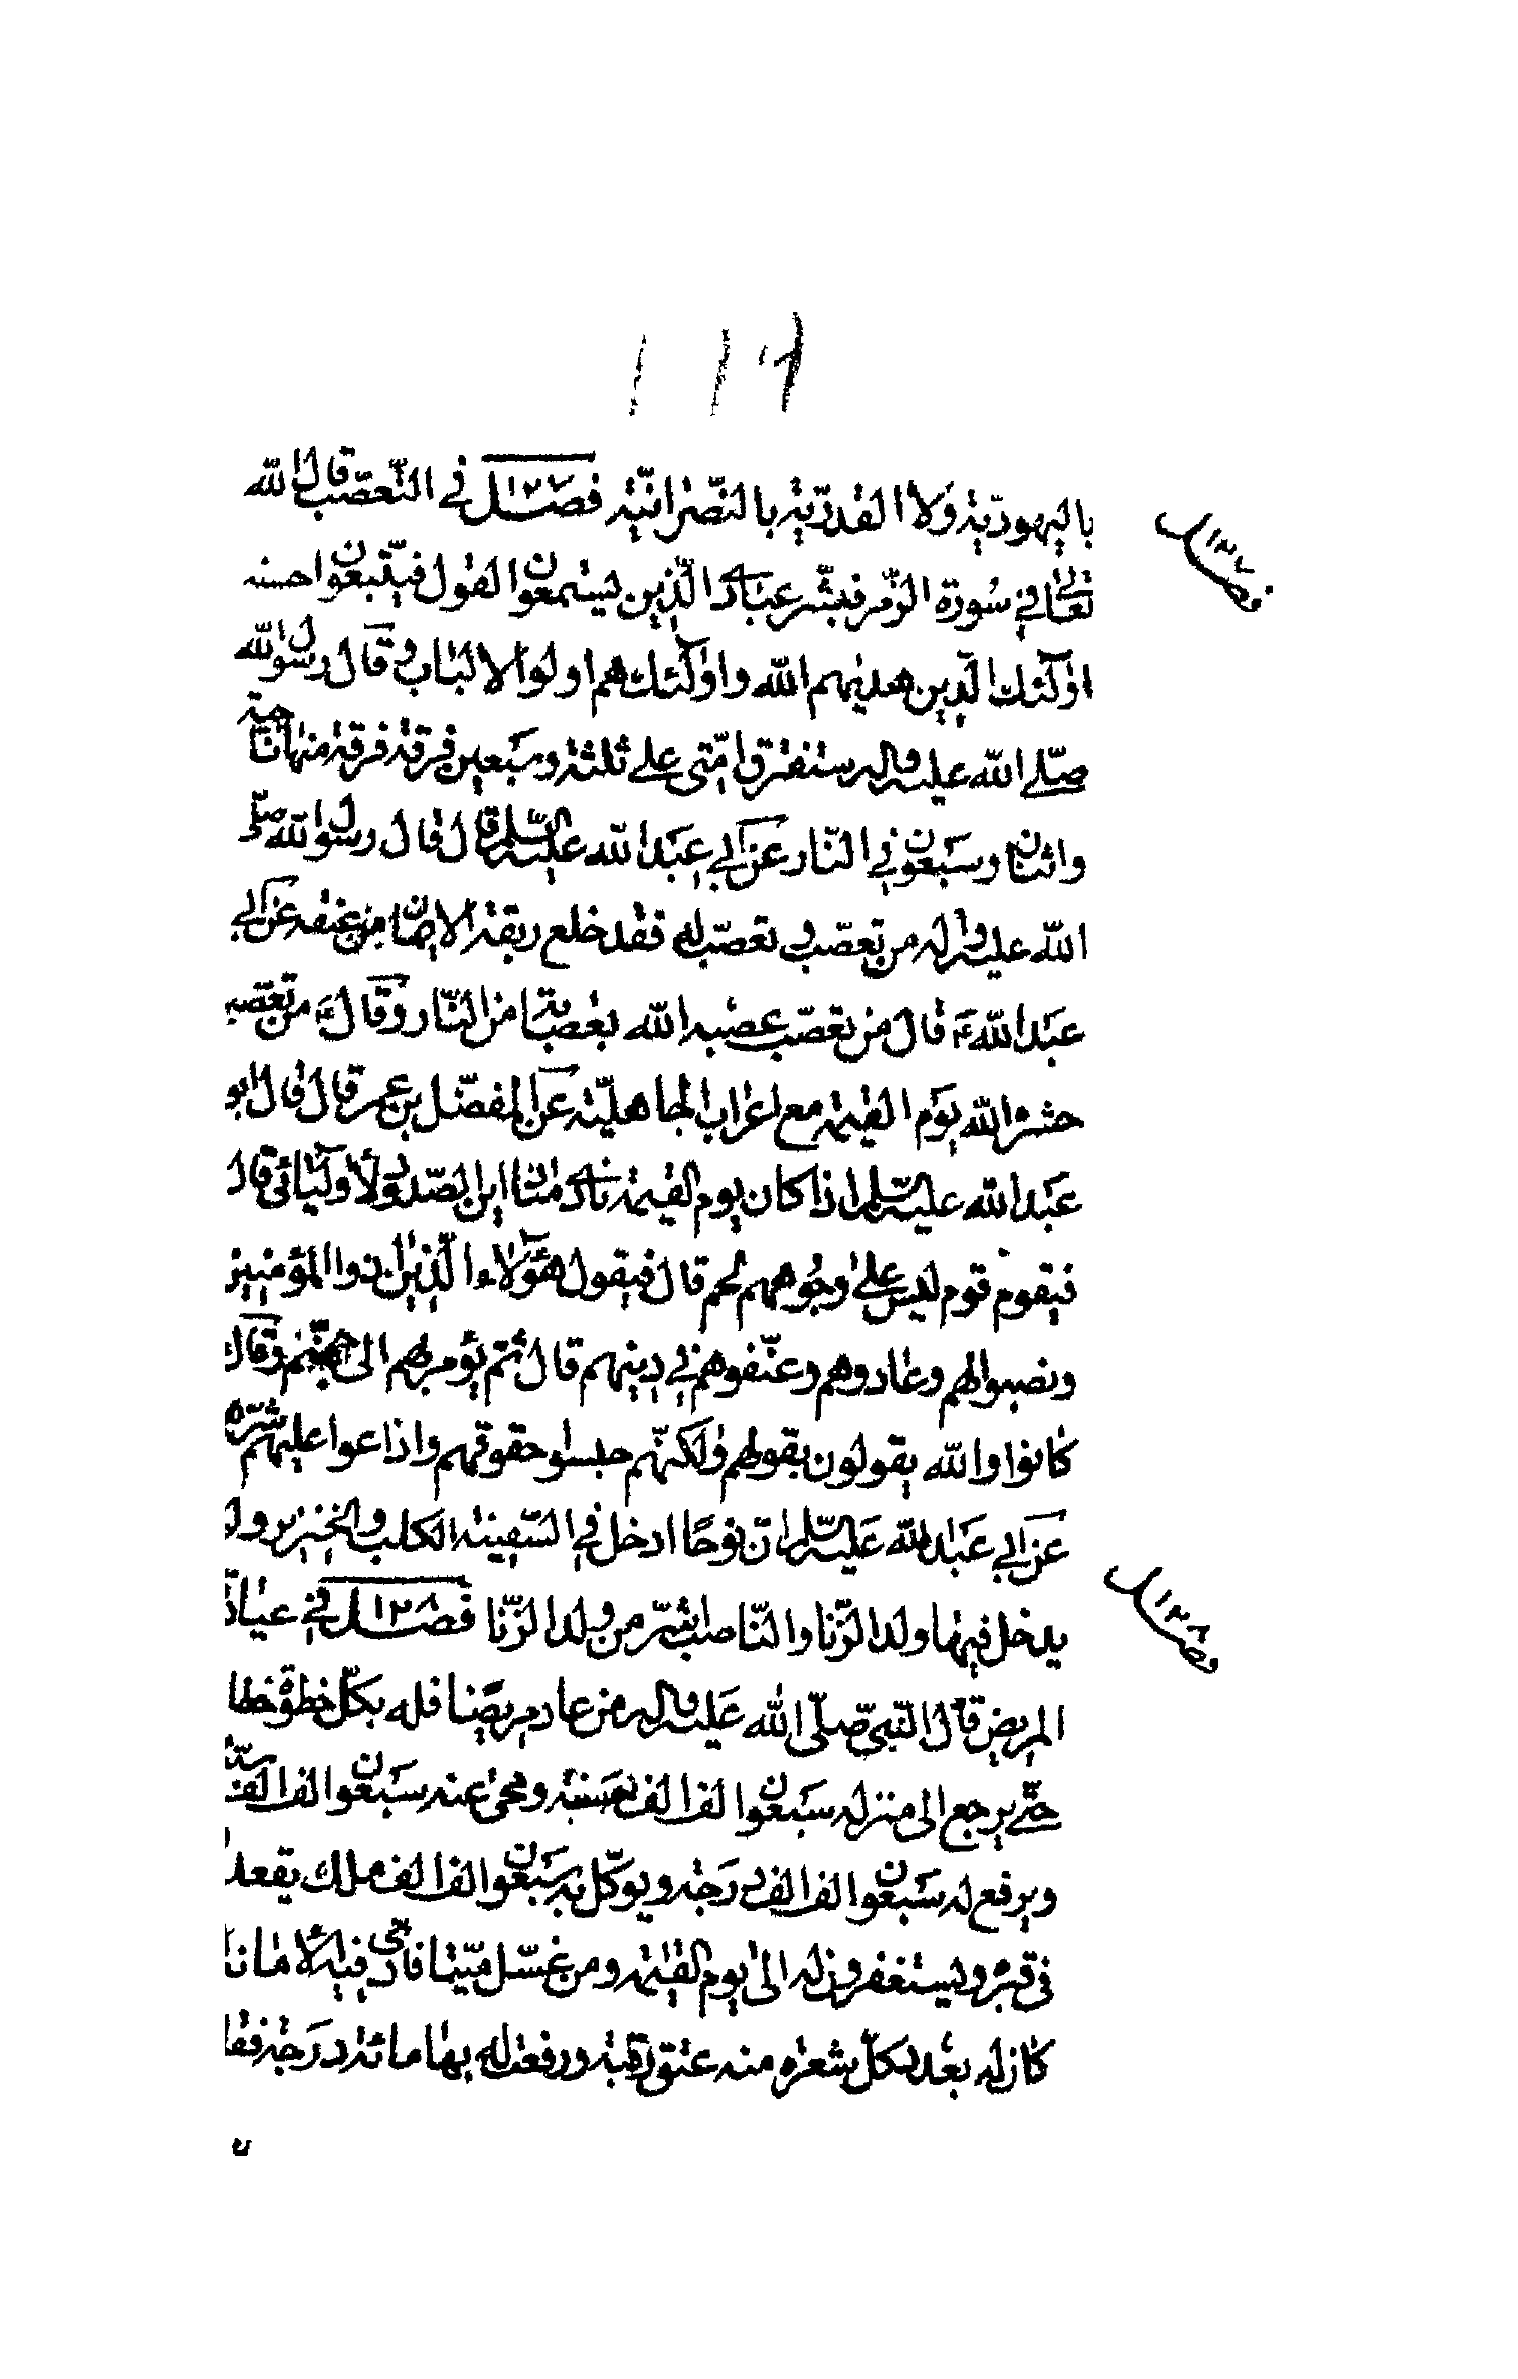 ١١٦
باليهوديّة ولا القدريّة بالنّصرانيّة فصل ١٢٧ في التّعصّب قال الله
تعالى في سورة الزّمر فبشّر عباد الّذين يستمعون القول فيتّبعون احسنه
اولئك الّذين هديهم الله واولئك هم اولوا الالباب وقال رسول الله
صلّى الله عليه واله ستفترق امّتي على ثلثة وسبعين فرقة فرقة منها ناجية
واثنان وسبعون في النّار عن ابي عبد الله عليه السّلم قال قال رسول الله صلّى
الله عليه واله من تعصّب او تعصّب له فقد خلع ربقة الايمان من عنقه عن ابي
عبد الله ع قال من تعصّب عصبه الله بعصابة من النّار وقال ع من تعصب
حشره الله يوم القيمة مع اعراب الجاهليّة عن المفضّل بن عمر قال قال ابو
عبد الله عليه السّلم اذا كان يوم القيمة ناد مناد اين الصّدود لأوليائي قال
فيقوم قوم ليس على وجوههم لحم قال فيقول هؤلاء الّذين اذوا المؤمنين
ونصبوا لهم وعادوهم وعنّفوهم في دينهم قال ثمّ يؤمر بهم الى جهنّم وقال
كانوا والله يقولون بقولهم ولكنّهم حبسوا حقوقهم واذاعوا عليهم سرّهم
عن ابي عبد الله عليه السّلم انّ نوحًا ادخل في السّفينة الكلب والخنزير ولم
يدخل فيها ولد الزّنا والنّاصب شرّ من ولد الزّنا فصل ١٢٨ في عيادة
المريض قال النّبيّ صلّى الله عليه واله من عاد مريضا فله بكلّ خطوة خطاها
حتّى يرجع الى منزله سبعون الف الف حسنة ومحى عنه سبعون الف الف سيّئة
ويرفع له سبعون الف الف درجة ويوكّل به سبعون الف الف ملك يقعد
في قبره ويستغفرون له الى يوم القيمة ومن غسّل ميّتا فادّى فيه الأمانة
كان له بعدد كلّ شعرة منه عتق رقبة ورفعت له بها مائة درجة فقال
فصل ١٢٧
فصل ١٢٨